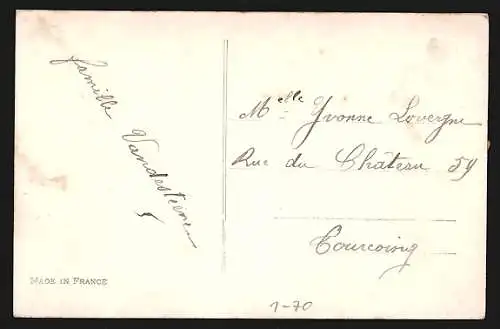 famille Vandesteene
Melle Yvonne Lovergne
Rue du Château 59
Tourcoing
MADE IN FRANCE
1-70